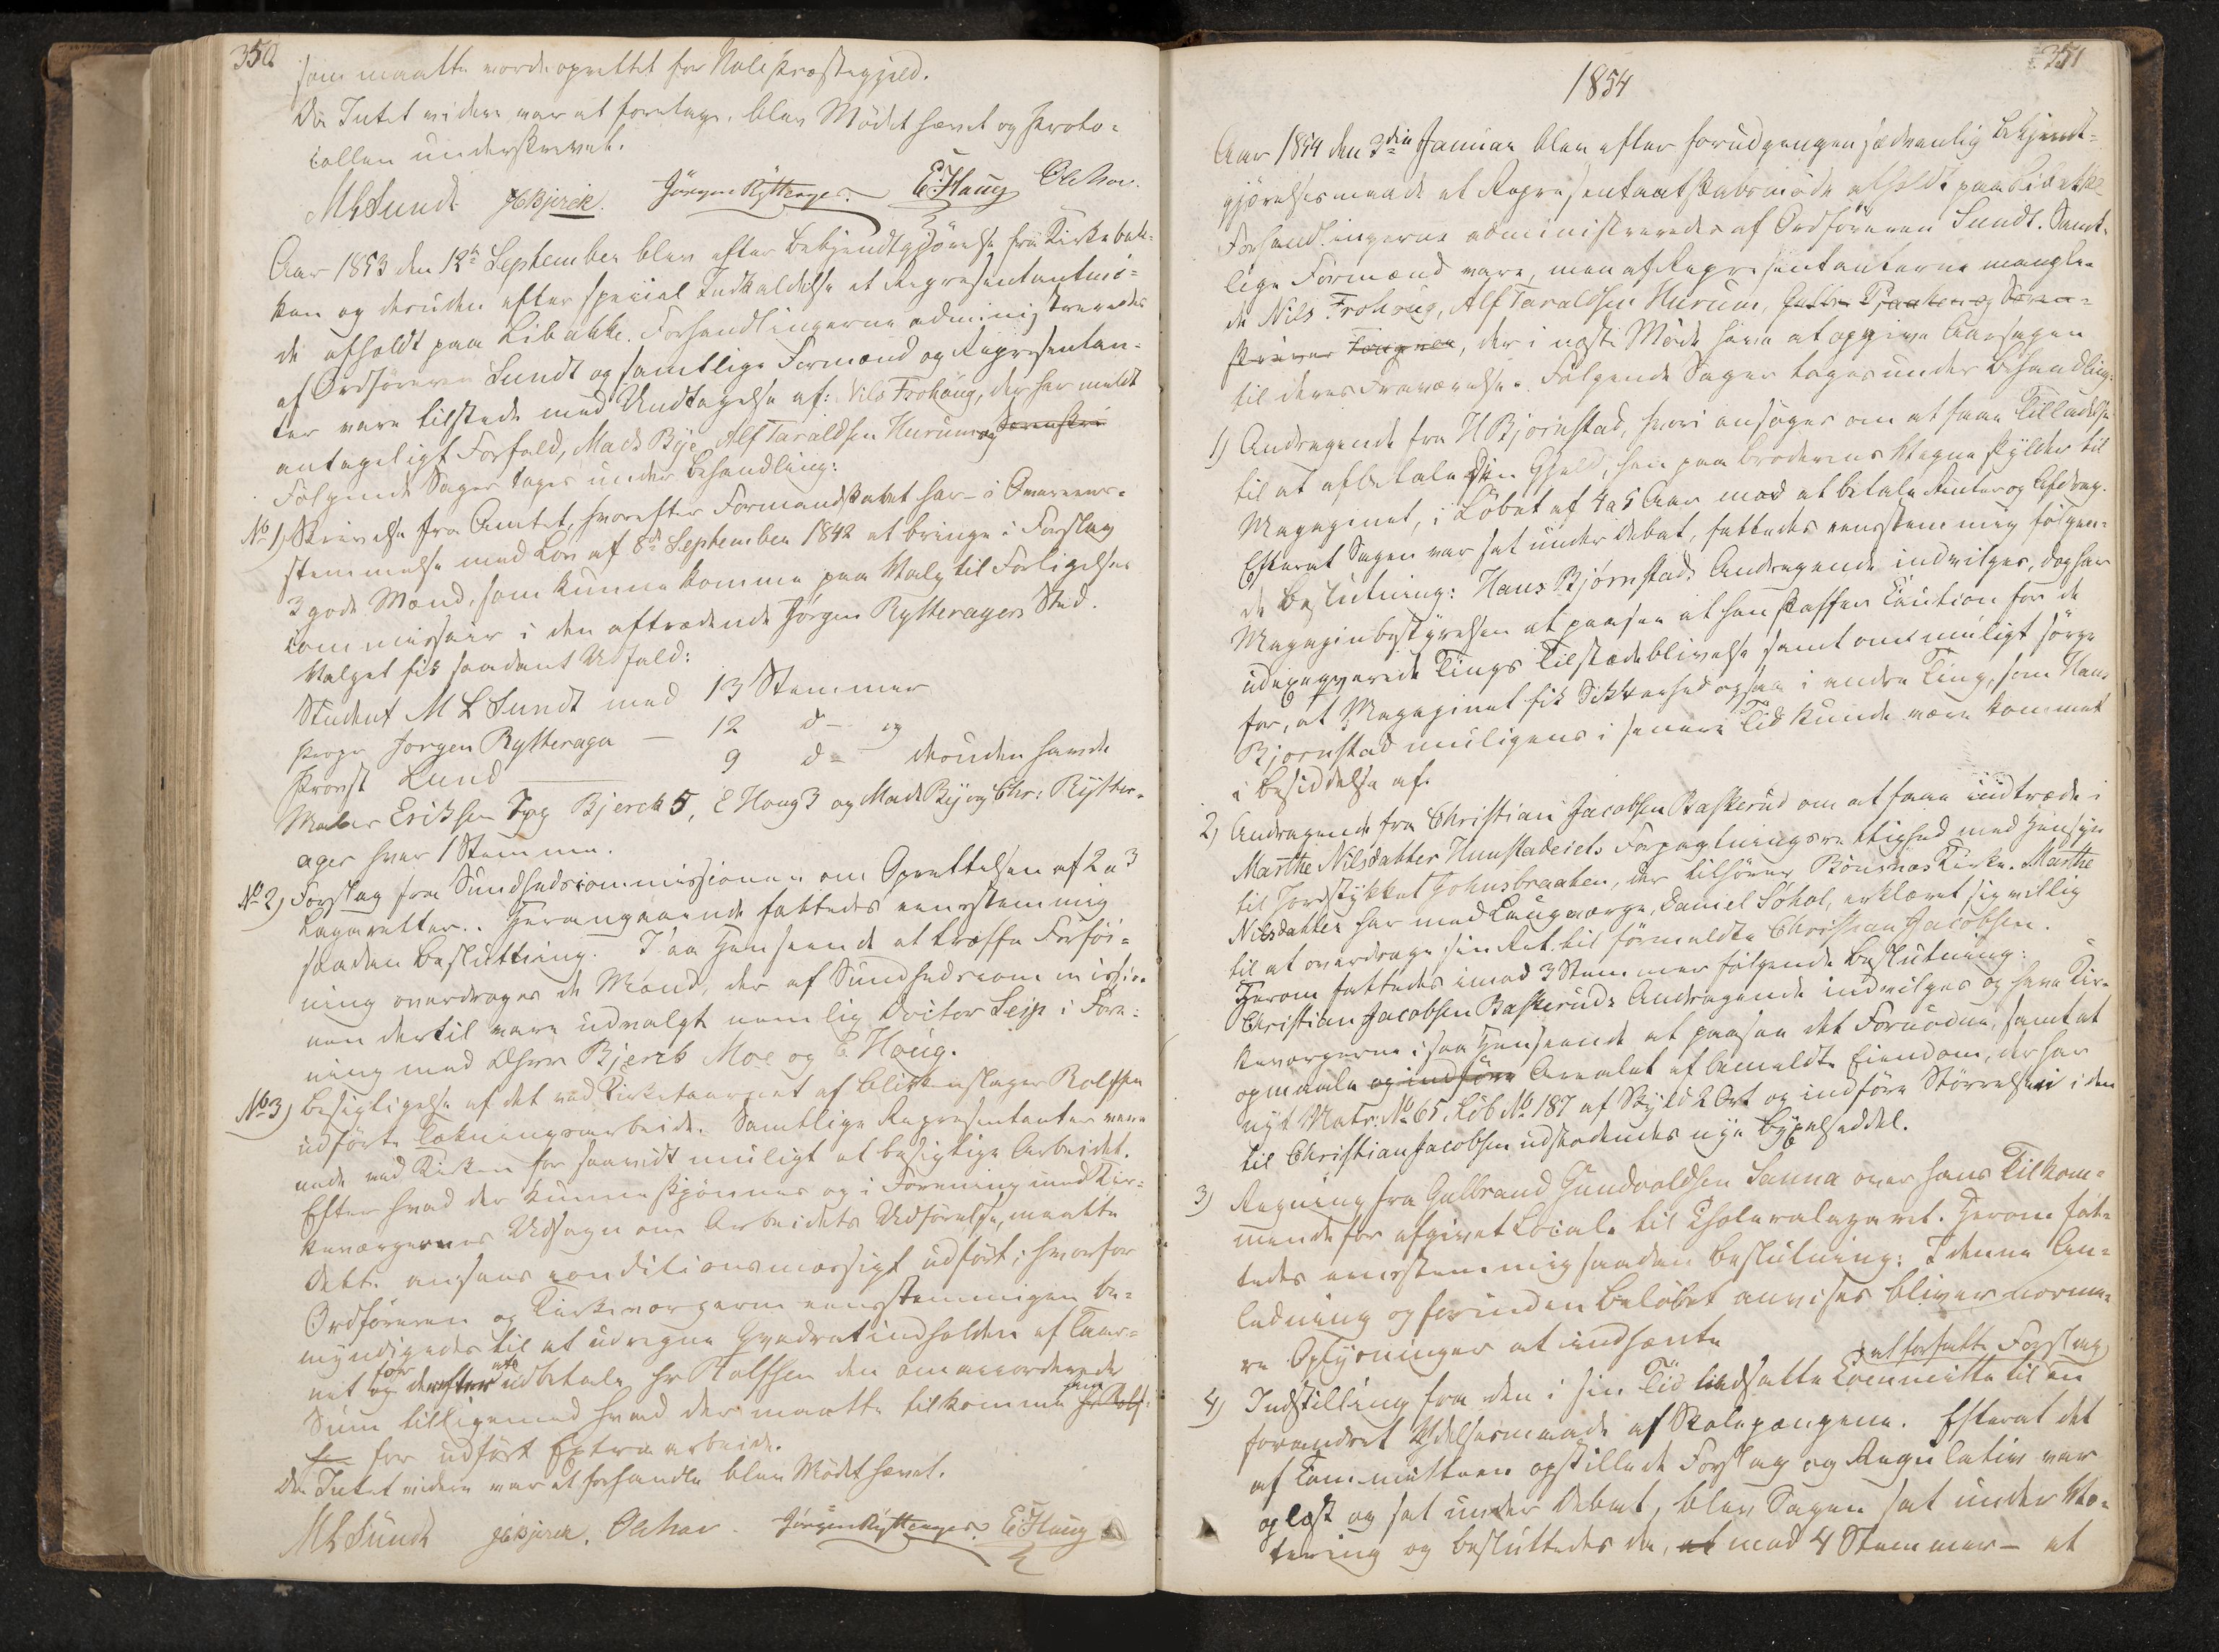 350
som maatte vorde oprettet for Hole Præstegjeld.
Da Intet videre var at foretage, blev Mødet hævet og Proto-
collen underskrevet.
MLSundt HBjerck. Jörgen Rytterager. E. Haug OleMoe.
Aar 1853 den 12te September blev efter Bekjendtgjörelse fra Kirkebak-
ken og desuden efter speciel Indkaldelse et Representantmö-
de afholdt paa Libakke. Forhandlingerne administreredes
af Ordföreren Sundt og samtlige Formænd og Representan-
ter vare tilstede med Undtagelse af: Nils Frohaug, der har meldt
antageligt Forfald, Mads Bye, Alf Taraldsen Hurum og Sorenskri
Fölgende Sager toges under Behandling:
No 1) Skrivelse fra Amtet, hvorefter Formandskabet har i Overens-
stemmelse med Lov af 8de September 1842 at bringe i Forslag
3 gode Mænd, som kunne komme paa Valg til Forligelses
commissair i den aftrædende Jørgen Rytteragers Sted.
Valget fik saadant Udfald:
Student M L Sundt med 13 Stemmer
Jorgen Rytterager — 12 d— og
Provst Lund — 9 d— desuden havde
Eriksen Bjerck 5, E Haug 3 og Mads Bye og Chr: Rytter-
ager hver 1 Stemme.
No 2) Forslag fra Sundhedscommissionen om Oprettelsen af 2 a 3
Lazaretter. Herangaaende fattedes eenstemmig
saadan Beslutning: I saa Henseende at træffe Forföi-
ning overdrages de Mænd, der af Sundhedscommissio-
nen dertil vare udvalgte nemlig Doctor Lejs i Fore-
ning med DHrr Bjerck Moe og E. Haug.
No 3) Besigtigelse af det ved Kirketaarnet af Blikkenslager Rolfsen
udförte Tækningsarbeide. Samtlige Representanter vare
nede ved Kirken for saavidt muligt at besigtige Arbeidet.
Efter hvad der kunne skjönnes og i Forening med Kir-
keværgernes Udsagn om Arbeidets Udförelse, maatte
dette ansees conditionsmæssigt udfört; hvorfor
Ordföreren og Kirkeværgerne eenstemmigen be-
myndigedes til at udregne Qvadratindholdet af Taar-
net og derefter udbetale Hr Rolfsen den omaccorderede
Sum tilligemed hvad der maatte tilkomme ham Hr Rolf-
sen for udfört Extraarbeide.
Da Intet videre var at forhandle blev Mödet hævet.
MLSundt HBjerck. OleMoe. Jörgen Rytterager. E. Haug
351
1854
Aar 1854 den 3die Januar blev efter forudgangen sædvanlig Bekjendt-
gjörelsesmaade et Representantskabsmöde afholdt paa Libakke
Forhandlingerne administreredes af Ordföreren Sundt. Samt-
lige Formænd vare, men af Representanterne mangle-
de Nils Frohaug, Alf Taraldsen Hurum, Gulbr Tjernsli og Soren-
skriver Fougner, der i næste Möde have at opgive Aarsagen
til deres Fraværelse. Fölgende Sager toges under Behandling:
1) Andragende fra H Bjørnstad, hvori ansöges om at faae Tilladelse
til at afbetale den Gjeld, han paa Broderens Vegne skylder til
Magazinet, i Löbet af 4 a 5 Aar mod at betale Renter og Afdrag.
Efterat Sagen var sat under Debat, fattedes eenstemmig fölgen-
de Beslutning: Hans Bjørnstads Andragende indvilges, dog har
Magazinbestyrelsen at paasee at han skaffer Caution for de
udexeqverede Tings Tilstædeblivelse samt om muligt sörge
for, at Magazinet fik Sikkerhed ogsaa i andre Ting, som Hans
Bjørnstad muligens i senere Tid kunde være kommet
i Besiddelse af.
2) Andragende fra Christian Jacobsen Baskerud om at faae indtræde i
Marthe Nilsdatter Hunstadeiets Forpagtningsrettighed med Hensyn
til Jordstykket Johnsbraaten, der tilhörer Bönsnæs Kirke. Marthe
Nilsdatter har med Laugværge, Daniel Sohol, erklæret sig villig
til at overdrage sin Ret til förmeldte Christian Jacobsen.
Herom fattedes imod 3 Stemmer fölgende Beslutning:
Christian Jacobsen Baskeruds Andragende indvilges og have Kir-
keværgerne i saa Henseende at paasee det Fornödne, samt at
opmaale og indföre Arealet af bemeldte Eiendom, der har
nyt Matr: No 65, Löb No 187 af Skyld 2 Ort og indföre Störrelsen i den
til Christian Jacobsen udstedendes nye Bygselseddel.
3) Regning fra Gulbrand Gundvaldsen Sanna over hans Tilkom-
mende for afgivet Locale til Choleralazaret. Herom fat-
tedes eenstemmig saadan Beslutning: I denne An-
ledning og forinden Belöbet anvises bliver nærme-
re Oplysninger at indhente
4) Indstilling fra den i sin Tid nedsatte Committe til en at forfatte Forslag
forandret Ydelsesmaade af Skolepengene. Efterat det
af Committeen opstillede Forslag og Regulativ var
oplæst og sat under Debat, blev Sagen sat under Vo-
tering og besluttedes da, at mod 4 Stemmer – at